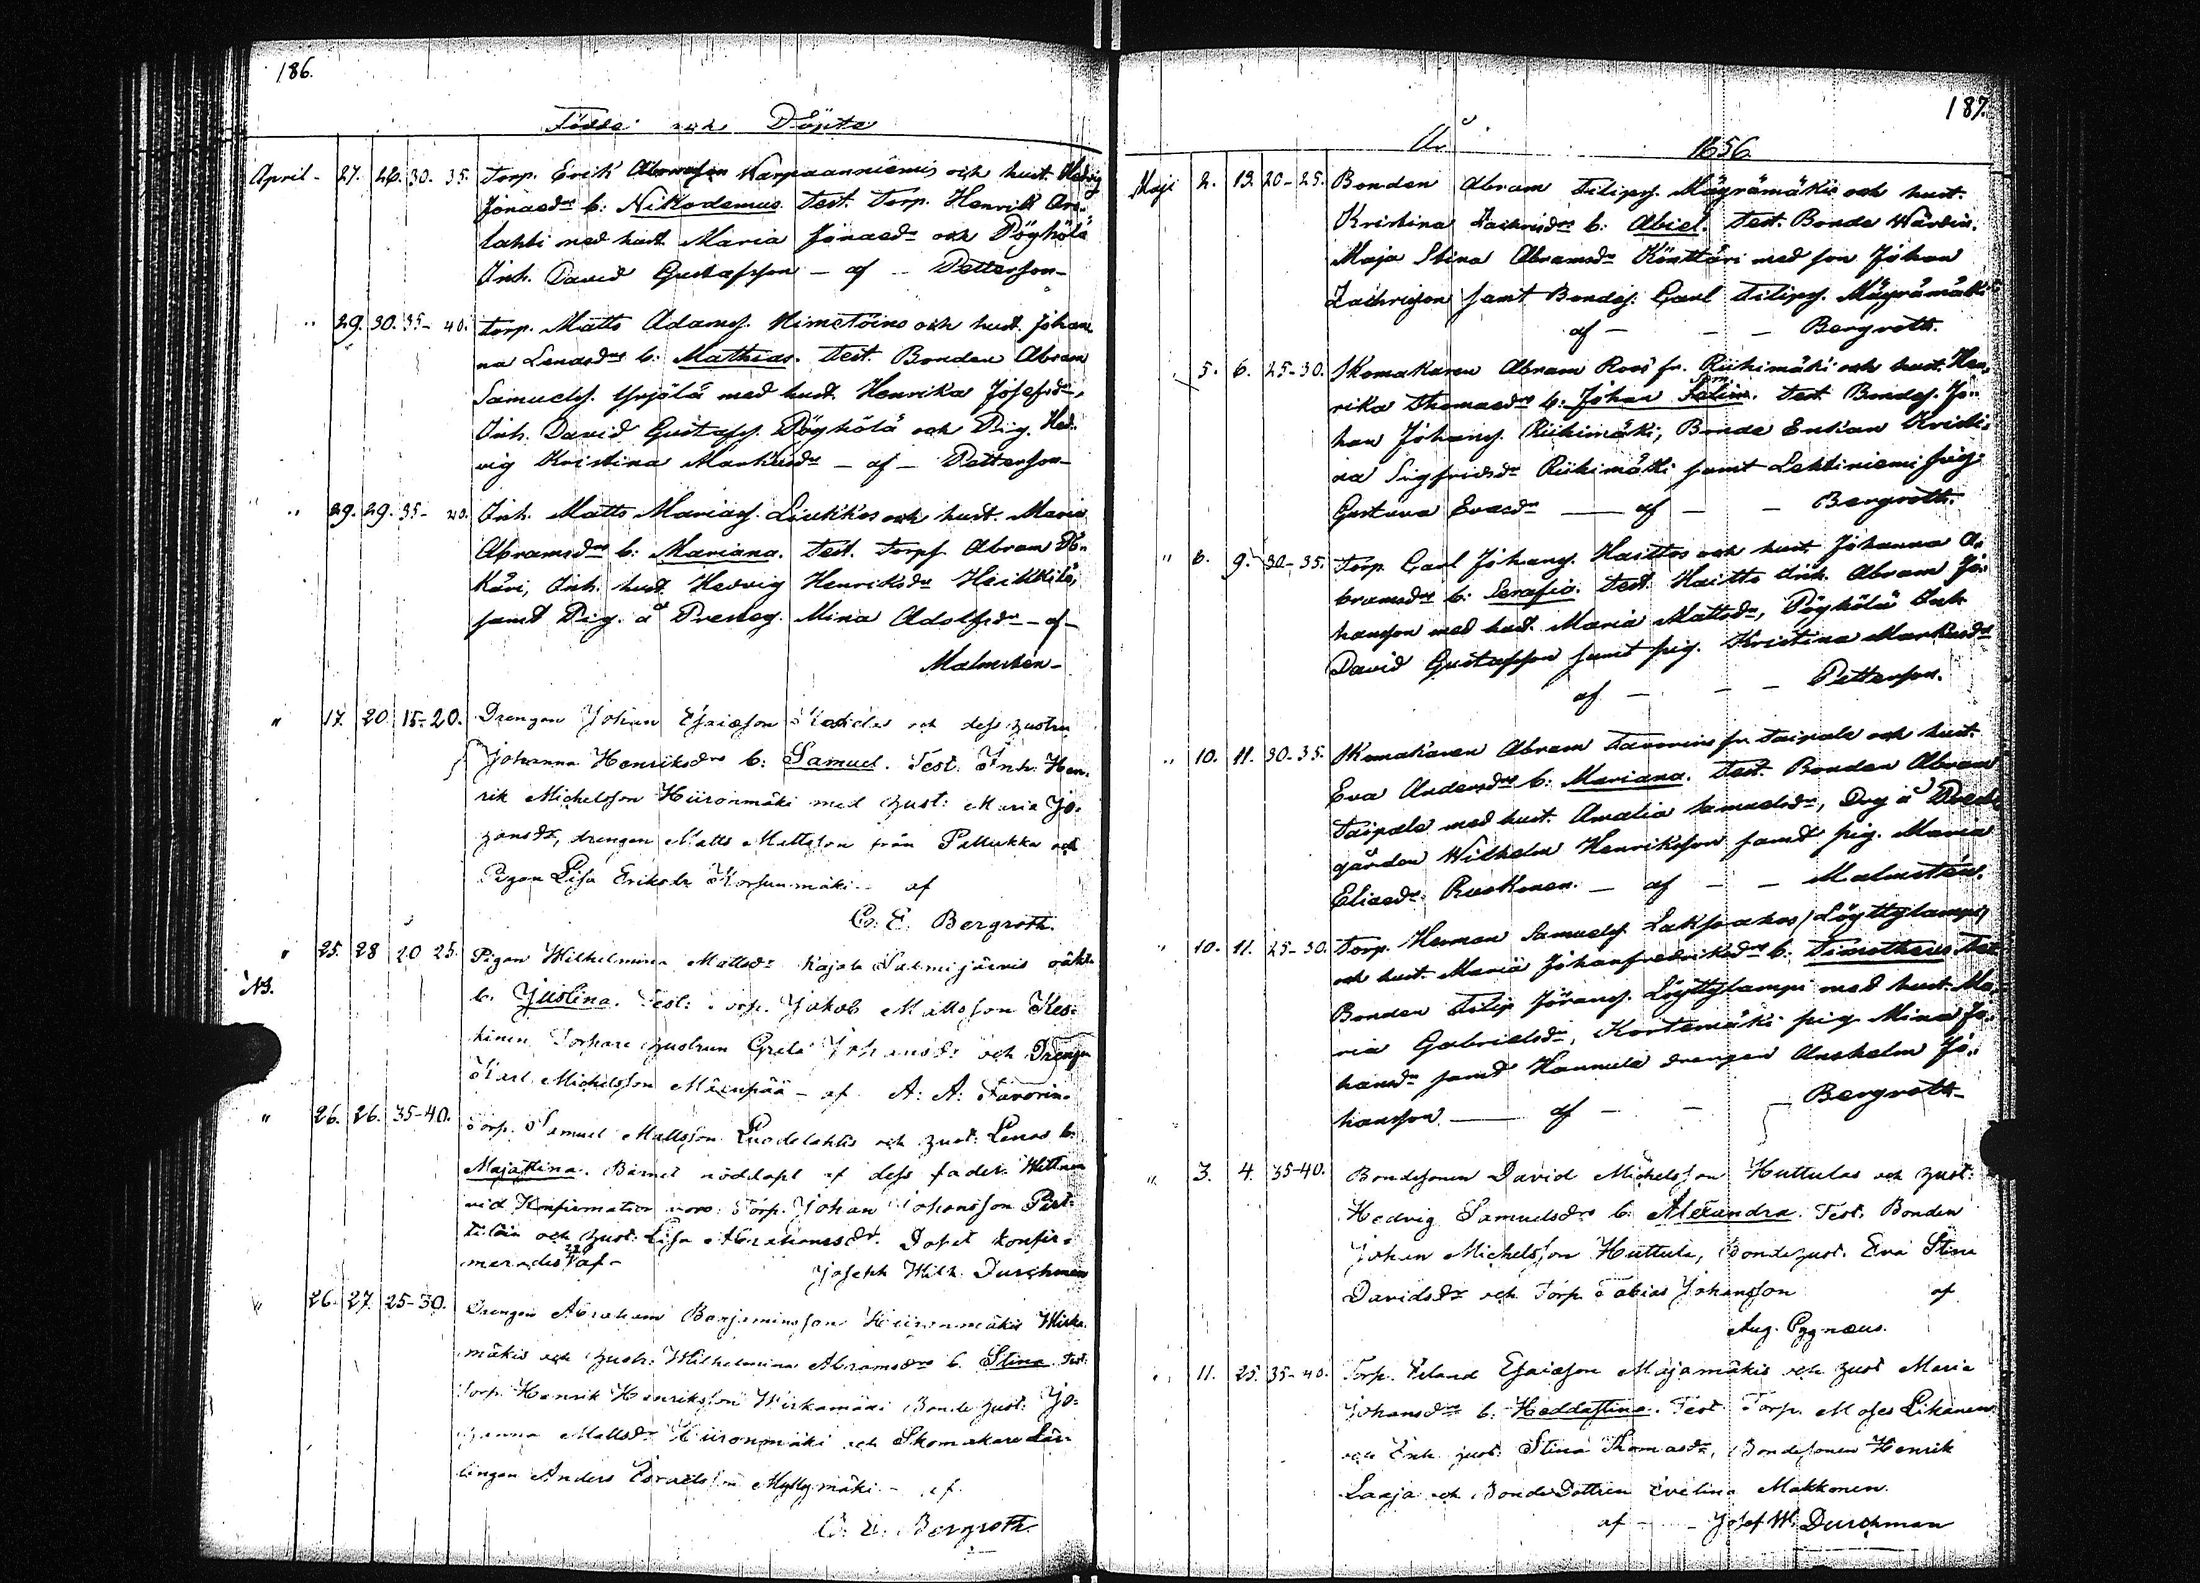 186.
Födde och Döpte
April - 27. 26. 30. 35. Torp. Erik Abramsson Karpaanniemis och hust. Hedvig
Jonasdrs b: Nikodemus Test. Torp. Henrik
lahti med hust. Maria Jonasdr och Pöyhölä
Inh. David Gustafsson - af - Petterson -
" 29. 30. 35- 40. Torp. Matts Adamss. Himetöins och hust. Johan-
na Lenasdrs b: Mathias. Test. Bonden Abram
Samuelss. Yrjölä med hust. Henrika Josefsdr,
Inh. David Gustafss. Pöyhölä och Pig. Hed-
vig Kristina Markusdr - af - Petterson -
" 29. 29. 35- 40. Inh. Matts Mariass. Liukkos och hust. Maria
Abramsdrs b: Mariana. Test. Torps. Abram
käri, Inh. hust. Hedvig Henriksdr Heikkilä,
samt Pig. å Presteg. Mina Adolfsdr - af -
Malmsten -
" 17. 20. 15-20. Drengen Johan Esaiasson och dess hustru
Johanna Henriksdrs b: Samuel. Test: Inh. Hen-
rik Michelsson Hiironmäki med hust: Maria Jo-
hansdr, drengen Matts Mattsson från Pallukka och
Pigan Lisa Eriksdr Korsunmäki - af
C. E. Bergroth.
" 25. 28 20 25. Pigan Wilhelmina Mattsdr Kajala Salmijärvis oäkta
N3. b. Justina. Test: Torp. Jakob Mattsson Kes-
kinen Torpare hustrun Greta Johansdr och Drengen
Karl Michelsson Mäenpää - af A: A: Favorin.
" 26. 26. 35-40. Torp. Samuel Mattsson Luodelahtis och hust. Lenas b:
Majastina. Barnet nöddöpt af dess fader. Wittnen
vid Konfirmation voro: Torp. Johan Johansson Pirt-
tilän och hust: Lisa Abrahamsdr. Dopet konfir-
merades af - Joseph Wilh. Durchman
" 26. 27. 25-30. Drengen Abraham Benjaminsson Hiironmäkis Wirka-
mäkis och hustr: Wilhelmina Abramsdrs b. Stina. Test:
Torp. Henrik Henriksson Wirkamäki Bonde hust: Jo-
hanna Mattsdr Hiironmäki och Skomakare Lär-
lingen Anders Israelsson Myllymäki - af
C. E. Bergroth.
187.
År 1856.
Maji 2. 13. 20-25. Bonden Abram Filipss. Mäyrämäkis och hust.
Kristina Zachrisdrs b: Abiel. Test. Bonde Wärdin.
Maja Stina Abramsdr Könttäri med son Johan
Zachrisson samt Bondes. Carl Filipss. Mäyrämäki
af - - - Bergroth.
5. 6. 25-30. Skomakaren Abram Roos fr. Riihimäki och hust. Hen-
rika Thomasdrs b: Johan Salim. Test. Bondes. Jo-
han Johanss. Riihimäki, Bonde Enkan Kristi-
na Sigfridsdr Riihimäki samt Lehtiniemi pig.
Gustava Evasdr - af - - Bergroth.
" 6. 9. 30-35. Torp. Carl Johanss. Haittos och hust. Johanna A-
bramsdrs b: Serafia. Test. Haitto Inh. Abram Jo-
hansson med hust. Maria Mattsdr, Pöyhölä Inh.
David Gustafsson samt pig. Kristina Markusdr
af - - - Petterson.
" 10. 11. 30-35. Skomakaren Abram fr. Taipale och hust.
Eva Andersdrs b: Mariana. Test. Bonden Abram
Taipale med hust. Amalia Samuelsdr, Drg å Prest-
gården Wilhelm Henriksson samt pig. Maria
Eliasdr Ruokonen. - af - - Malmstén.
" 10. 11. 25-30. Torp. Herman Samuelss. Laksoahos / Löyttylampi /
och hust. Maria Johanfredriksdrs b: Timotheus Test
Bonden Filip Göranss. Löyttylampi med hust. Ma-
ria Gabrielsdr, Kortemäki pig Mina Jo-
hansdr samt Hannula drengen Anshelm Jo-
hansson - af - - Bergroth -
" 3. 4. 35-40. Bondesonen David Michelsson Huttulas och hust:
Hedvig Samuelsdrs b. Alexandra. Test. Bonden
Johan Michelsson Huttula, Bondehust. Eva Stina
Davidsdr och Torp. Tobias Johansson af
Aug. Pygnæus.
" 11. 25. 35-40. Torp. Erland Esaiasson Majamäkis och hust Maria
Johansdrs b. Heddastina. Test. Torp. Moses Likanen
och Enk. hust: Stina Thomasdr, Bondesonen Henrik
Laaja och Bonde Dottren Evelina Makkonen.
af - - Josef W. Durchman